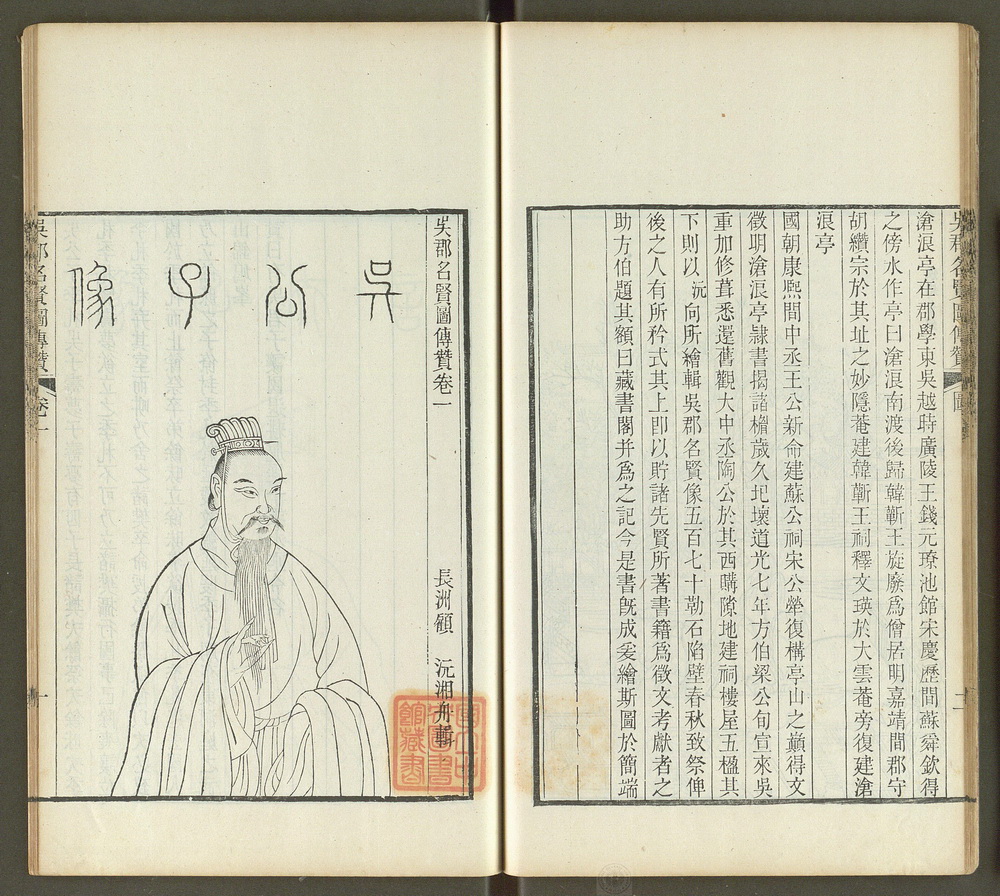 吳郡名賢圖傳贊　圖　二
滄浪亭在郡學東吳越時廣陵王錢元璙池館宋慶歷間蘇舜欽得
之傍水作亭曰滄浪南渡後歸韓蘄王旋廢爲僧居明嘉靖間郡守
胡纘宗於其址之妙隱菴建韓蘄王祠釋文瑛於大雲菴旁復建滄
浪亭
國朝康熙間中丞王公新命建蘇公祠宋公犖復構亭山之巔得文
徵明滄浪亭隸書揭諸楣歲久圮壞道光七年方伯梁公旬宣來吳
重加修葺悉還舊觀大中丞陶公於其西購隙地建祠樓屋五楹其
下則以沅向所繪輯吳郡名賢像五百七十勒石陷壁春秋致祭俾
後之人有所矜式其上卽以貯諸先賢所著書籍爲徵文考獻者之
助方伯題其額曰藏書閣并爲之記今是書旣成爰繪斯圖於簡端
吳郡名賢圖傳贊卷一
長洲顧　沅湘舟輯
吳公子像
吳郡名賢圖傳贊　卷一　一